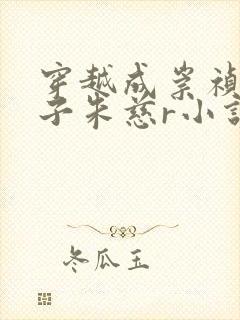 穿越成崇祯
子朱慈r小说
冬瓜玉